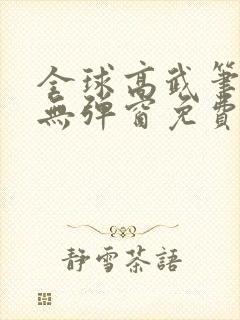 全球高武筆
無彈窗免費
靜雪茶語